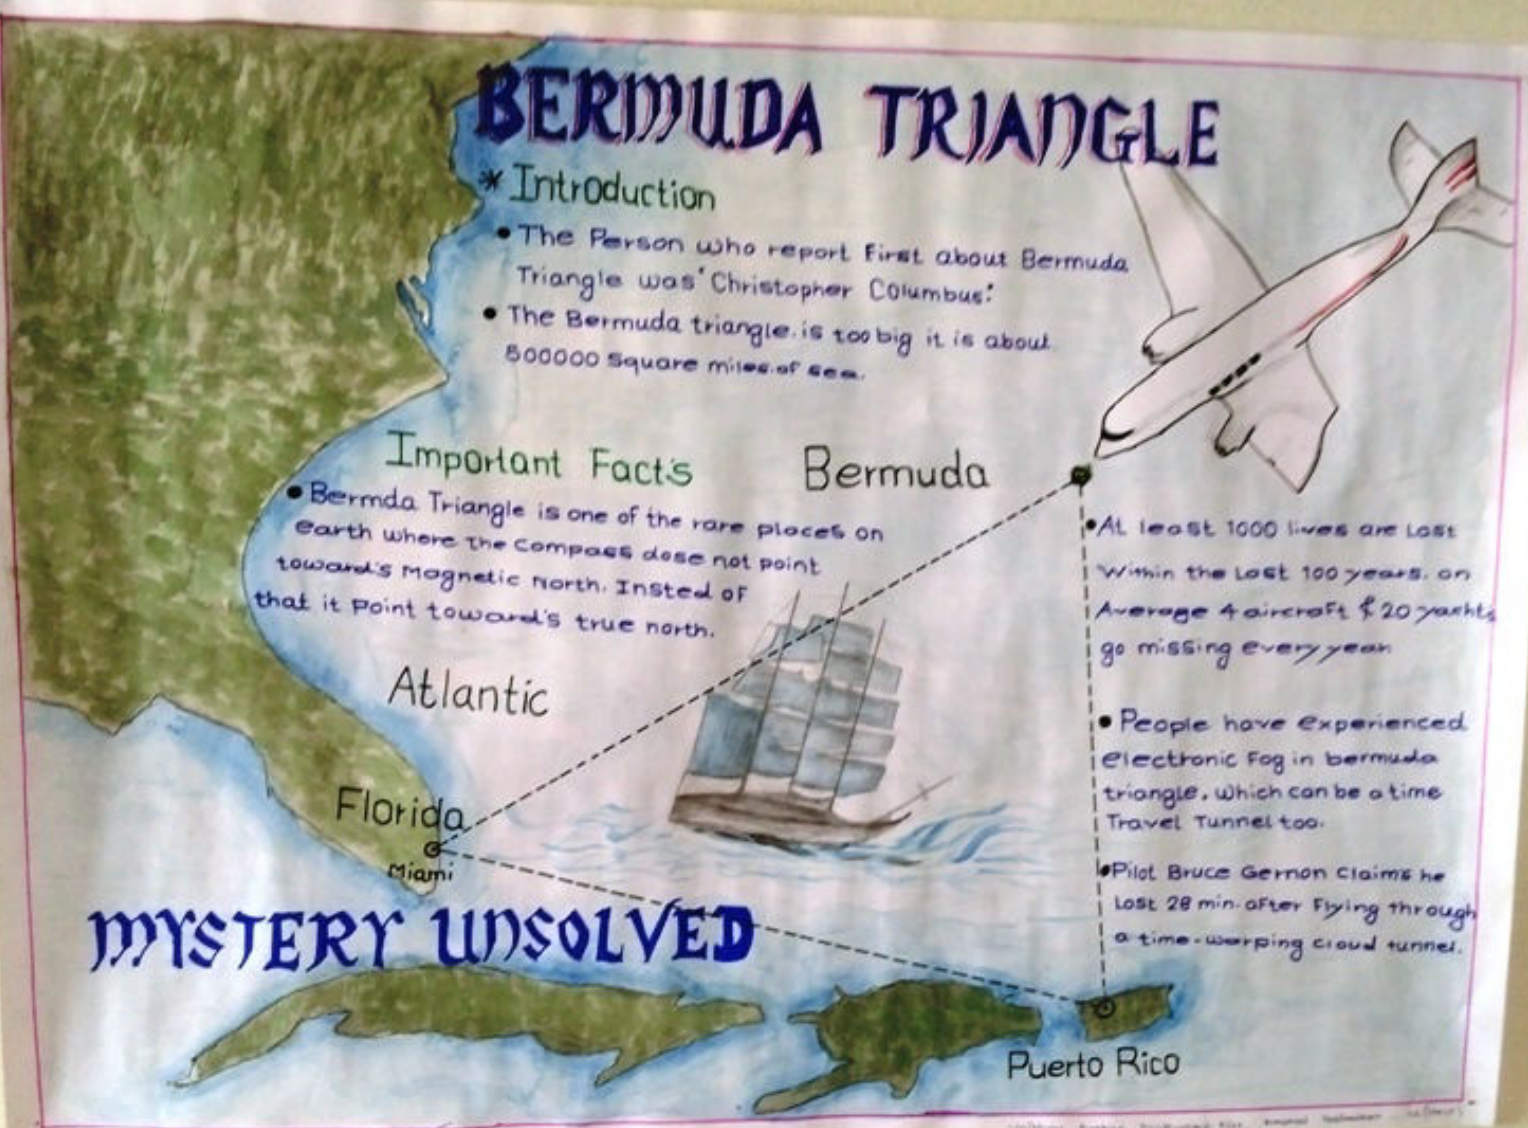 BERMUDA TRIANGLE
* Introduction
• The Person who report First about Bermuda
Triangle was' Christopher Columbus:
• The Bermuda triangle. is too big it is about
500000 Square miles.of sea.
Important Fact's
• Bermda Triangle is one of the rare places on
earth where the Compass dose not point
toward's Magnetic North. Insted of
that it Point toward's true north.
Bermuda
• At least 1000 lives are Lost
Within the Last 100 years. on
Average 4 aircraft & 20 yachts
go missing every year
• People have experienced
electronic Fog in bermuda
triangle. which can be a time
Travel Tunnel too.
• Pilot Bruce Gernon Claims he
Lost 28 min. after Flying through
a time-warping cloud tunnel.
Atlantic
Florida
Miami
MYSTERY UNSOLVED
Puerto Rico